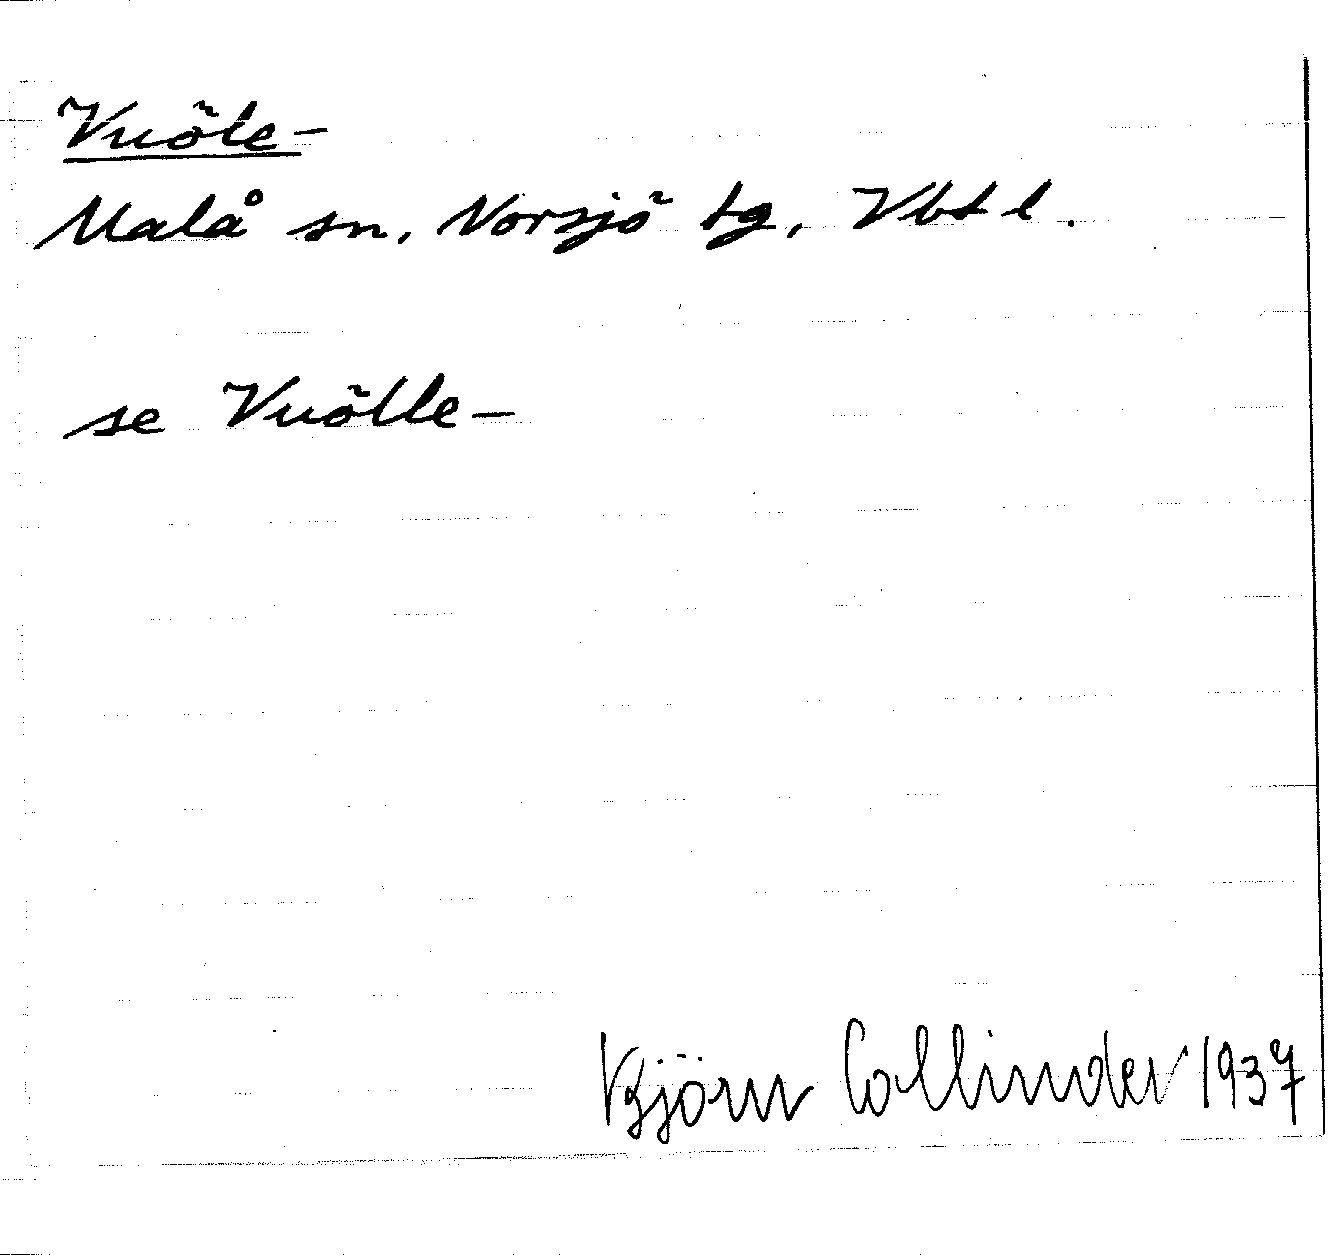 Vuöle-
Malå sn, Norsjö tg, Vbtl.
se Vuölle-
Björn Collinder 1937